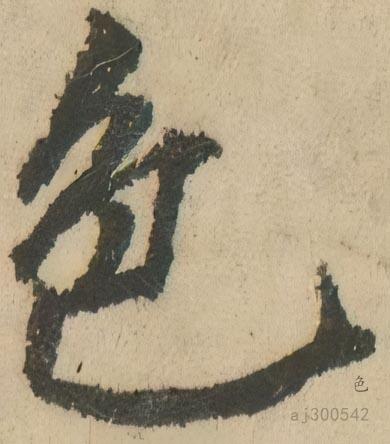 色
色
aj300542